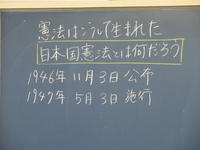 憲法はこうして生まれた
日本国憲法とは何だろう
1946年 11月3日 公布
1947年 5月3日 施行